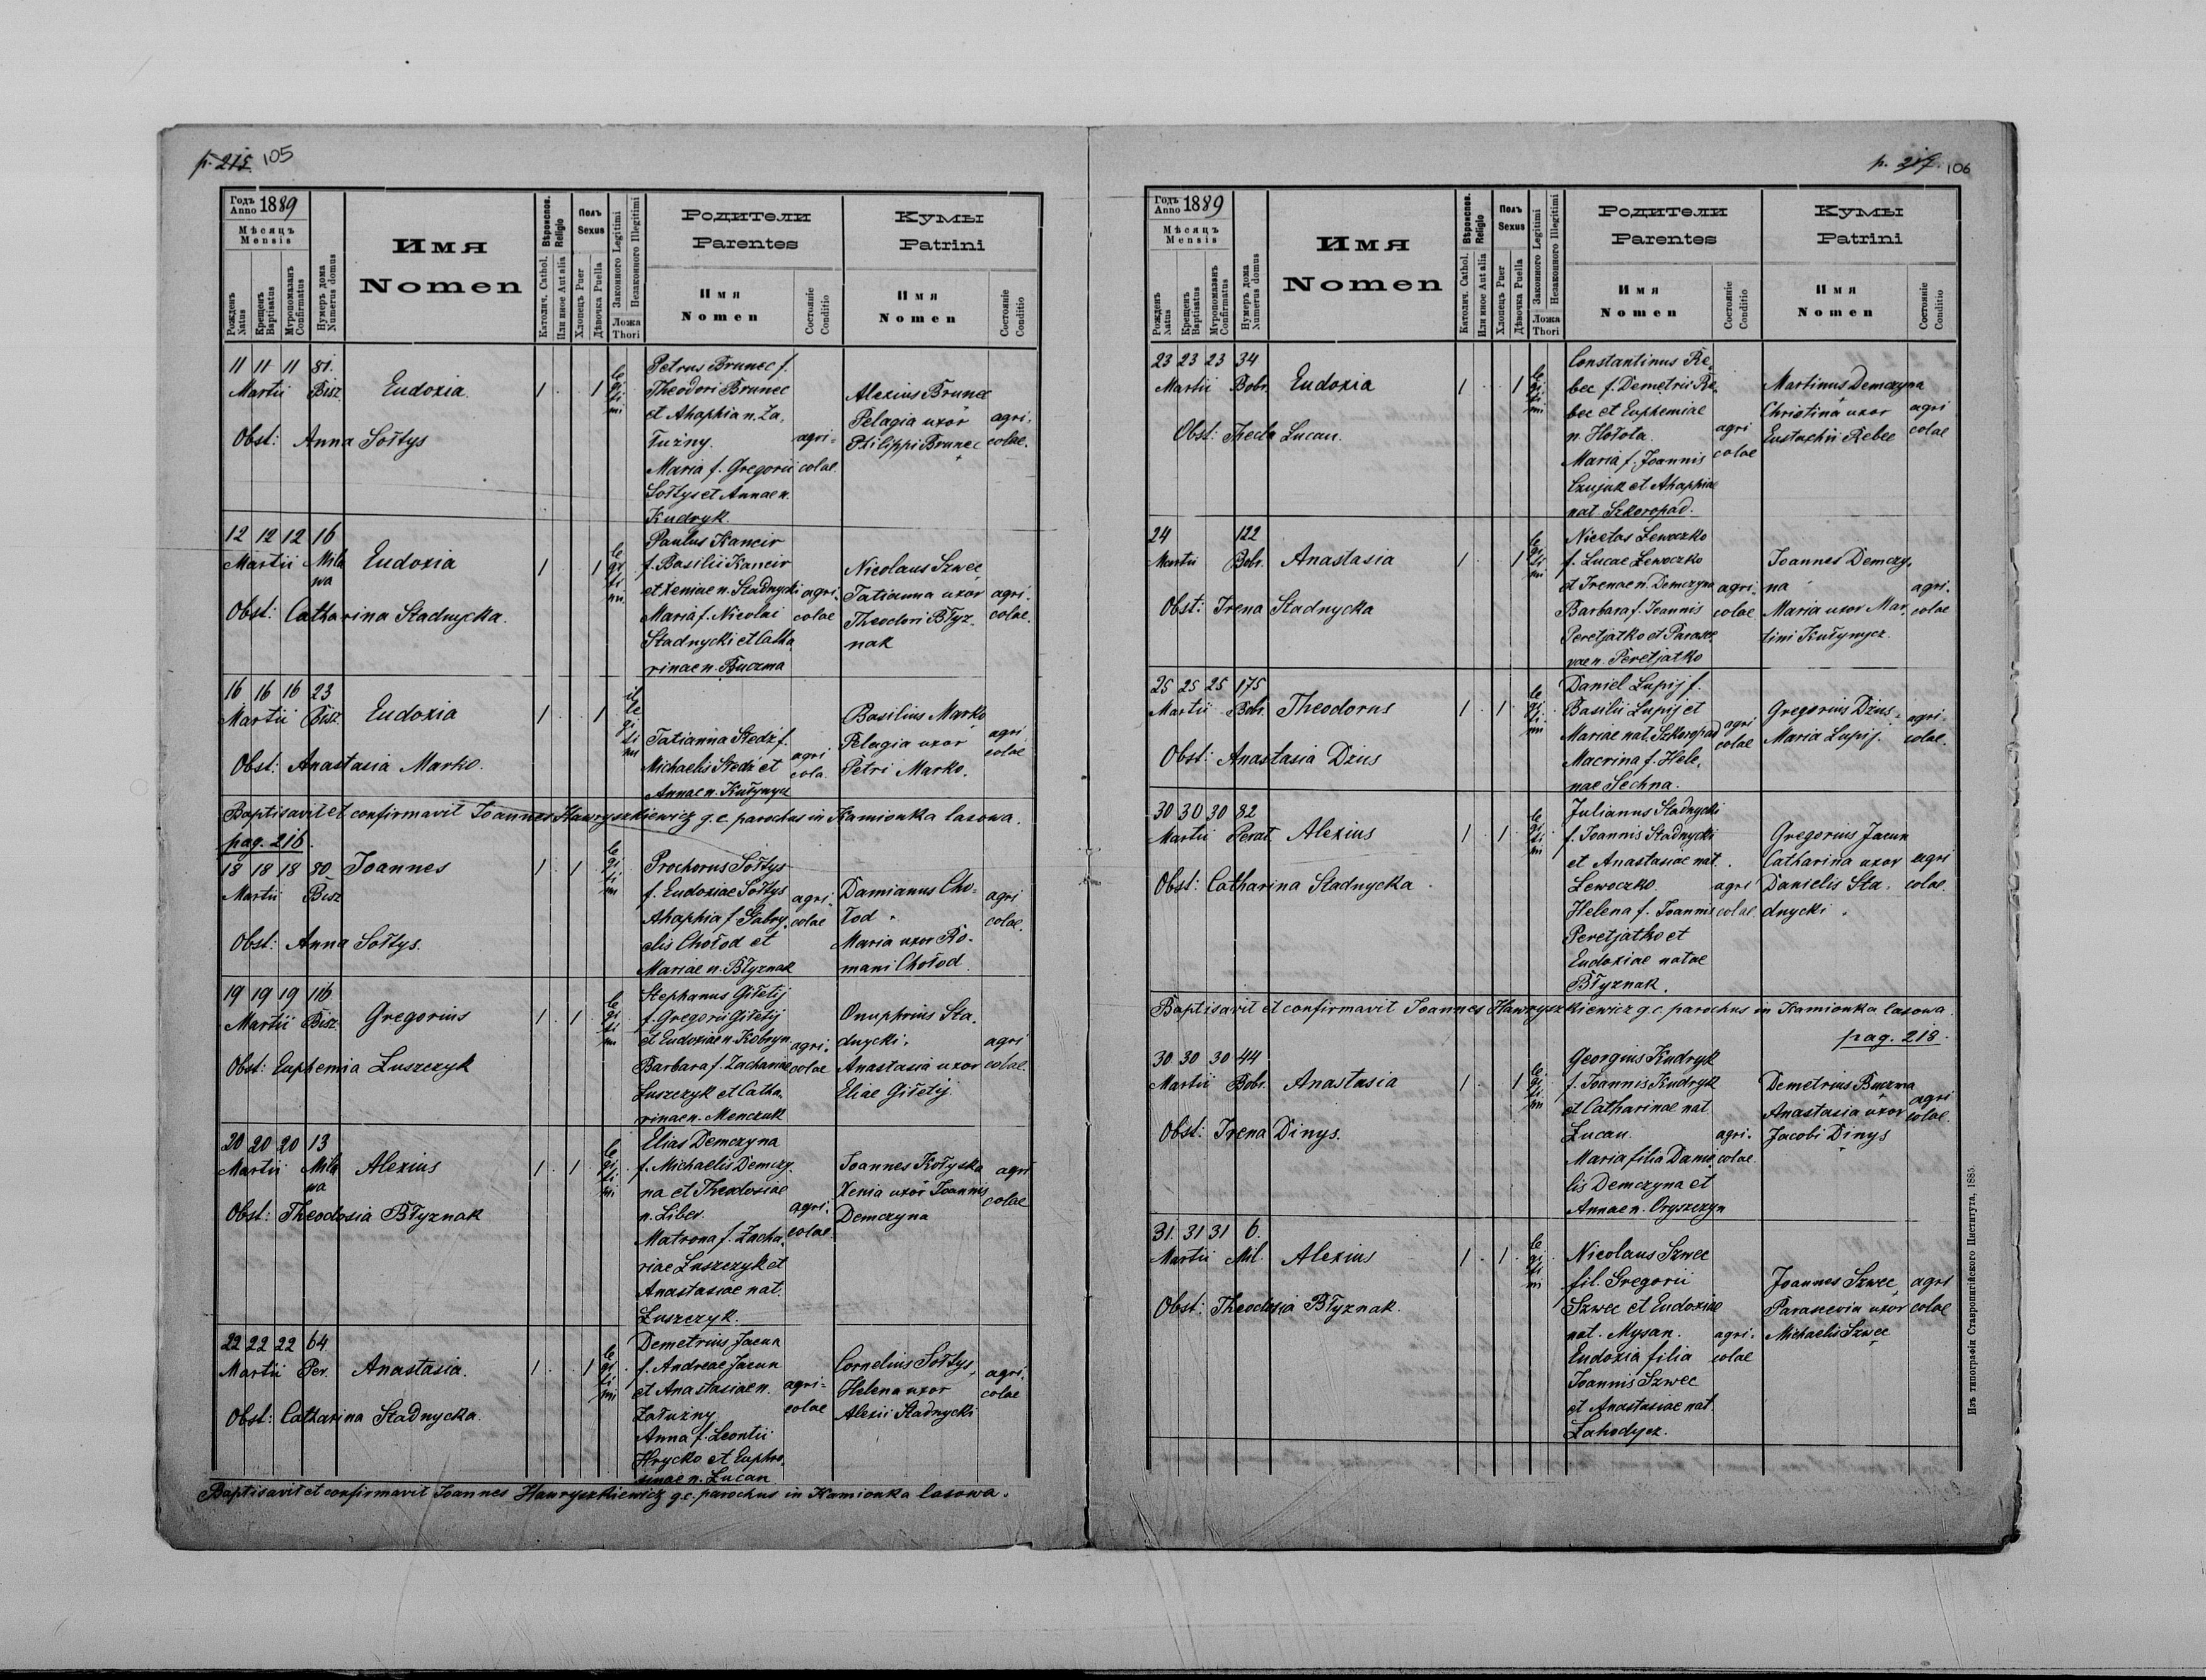 p. 215 105
Годъ Anno 1889
Мѣсяцъ Mensis
Рожденъ Natus
Крещенъ Baptisatus
Муропомазанъ Confirmatus
Нумеръ дома Numerus domus
Имя Nomen
Вѣроиспов. Religio
Католич. Cathol.
Или иное Aut alia
Полъ Sexus
Хлопецъ Puer
Дѣвочка Puella
Законного Legitimi
Незаконного Illegitimi
Ложа Thori
Родители Parentes
Имя Nomen
Состояніе Conditio
Кумы Patrini
Имя Nomen
Состояніе Conditio
11 11 11 81.
Martii Bisz. Eudoxia. 1 1 legitimi
Obst: Anna Sołtys
Petrus Brunec f.
Theodori Brunec
et Ahaphia n. Za-
łużny.
Maria f. Gregorii
Sołtys et Annae n.
Kudryk.
agri=
colae
Alexius Brunec
Pelagia uxor
Philippi Brunec
agri-
colae.
12 12 12 16
Martii Milowa Eudoxia 1 1 legitimi
Obst: Catharina Stadnycka.
Paulus Kancir
f. Basilii Kancir
et Xeniae n. Stadnycki
Maria f. Nicolai
Stadnycki et Catha
rinae n. Buczma
agri-
colae
Nicolaus Szwec
Tatianna uxor
Theodori Błyz-
nak
agri-
colae.
16 16 16 23
Martii Bisz. Eudoxia 1 1 illegitimi
Obst: Anastasia Marko.
Tatianna Stedz f.
Michaelis Stedz et
Annae n. Kułynycz
agri
cola.
Basilius Marko
Pelagia uxor
Petri Marko.
agri
colae
Baptisavit et confirmavit Joannes Hawryszkiewicz g.c. parochus in Kamionka lasowa.
pag. 216.
18 18 18 80 Joannes 1 1 legitimi
Martii Bisz
Obst: Anna Sołtys.
Prochorus Sołtys
f. Eudoxiae Sołtys
Ahaphia f. Gabry-
elis Chołod et
Mariae n. Błyznak
agri-
colae
Damianus Cho-
łod
Maria uxor Ro-
mani Chołod
agri
colae.
19 19 19 116
Martii Bisz. Gregorius 1 1 legitimi
Obst: Euphemia Łuszczyk
Stephanus Giłetij
f. Gregorii Giłetij
et Eudoxiae n. Kobryn
Barbara f. Zachariae
Łuszczyk et Catha-
rinae n. Menczuk
agri-
colae
Onuphrius Sta-
dnycki.
Anastasia uxor
Eliae Giłetij.
agri
colae.
20 20 20 13
Martii Milowa Alexius 1 1 legitimi
Obst: Theodosia Błyznak
Elias Demczyna
f. Michaelis Demczy-
na et Theodosiae
n. Liber.
Matrona f. Zacha-
riae Łuszczyk et
Anastasiae nat.
Łuszczyk.
agri-
colae
Joannes Kołyska
Xenia uxor Joannis
Demczyna
agri
colae
22 22 22 64
Martii Per. Anastasia. 1 1 legitimi
Obst: Catharina Stadnycka.
Demetrius Jacun
f. Andreae Jacun
et Anastasiae n.
Załużny
Anna f. Leontii
Hrycko et Euphro-
sinae n. Łucan
agri=
colae
Cornelius Sołtys
Helena uxor
Alexii Stadnycki
agri-
colae
Baptisavit et confirmavit Joannes Hawryszkiewicz g.c. parochus in Kamionka lasowa.
p. 217. 106
Годъ Anno 1889
Мѣсяцъ Mensis
Рожденъ Natus
Крещенъ Baptisatus
Муропомазанъ Confirmatus
Нумеръ дома Numerus domus
Имя Nomen
Вѣроиспов. Religio
Католич. Cathol.
Или иное Aut alia
Полъ Sexus
Хлопецъ Puer
Дѣвочка Puella
Законного Legitimi
Незаконного Illegitimi
Ложа Thori
Родители Parentes
Имя Nomen
Состояніе Conditio
Кумы Patrini
Имя Nomen
Состояніе Conditio
23 23 23 34
Martii Bobr. Eudoxia 1 1 legitimi
Obst: Thecla Łucan.
Constantinus Re-
bec f. Demetrii Re-
bec et Euphemiae
n. Hołota.
Maria f. Joannis
Czujuk et Ahaphiae
nat. Szkoropad.
agri
colae
Martinus Demczyna
Christina uxor
Eustachii Rebec
agri
colae
24 122
Martii Bobr. Anastasia 1 1 legitimi
Obst: Irena Stadnycka
Nicetas Lewoczko
f. Lucae Lewoczko
et Irenae n. Demczyna
Barbara f. Joannis
Peretjatko et Parasce
vae n. Peretjatko
agri-
colae
Joannes Demczy-
na
Maria uxor Mar-
tini Kułynycz
agri-
colae
25 25 25 175
Martii Bobr. Theodorus 1 1 legitimi
Obst: Anastasia Dzius
Daniel Łupij f.
Basilii Łupij et
Mariae nat. Szkoropad
Macrina f. Hele-
nae Sechna.
agri
colae
Gregorius Dzius
Maria Łupij.
agri-
colae.
30 30 30 82
Martii Perat. Alexius 1 1 legitimi
Obst: Catharina Stadnycka.
Julianus Stadnycki
f. Joannis Stadnycki
et Anastasiae nat.
Lewoczko.
Helena f. Joannis
Peretjatko et
Eudoxiae natae
Błyznak.
agri
colae.
Gregorius Jacun
Catharina uxor
Danielis Sta-
dnycki.
agri
colae.
Baptisavit et confirmavit Joannes Hawryszkiewicz g.c. parochus in Kamionka lasowa.
pag. 218.
30 30 30 44
Martii Bobr. Anastasia 1 1 legitimi
Obst: Irena Dinys.
Georgius Kudryk
f. Joannis Kudryk
et Catharinae nat.
Łucan.
Maria filia Danie-
lis Demczyna et
Annae n. Oryszczyn
agri-
colae.
Demetrius Buczma
Anastasia uxor
Jacobi Dinys
agri
colae.
31. 31 31 6.
Martii Mil. Alexius 1 1 legitimi
Obst: Theodosia Błyznak.
Nicolaus Szwec
fil. Gregorii
Szwec et Eudoxiae
nat. Mysan.
Eudoxia filia
Joannis Szwec
et Anastasiae nat.
Łahodycz.
agri-
colae
Joannes Szwec,
Parascevia uxor
Michaelis Szwec
agri
colae
Изъ типографіи Ставропигійского Института, 1885.